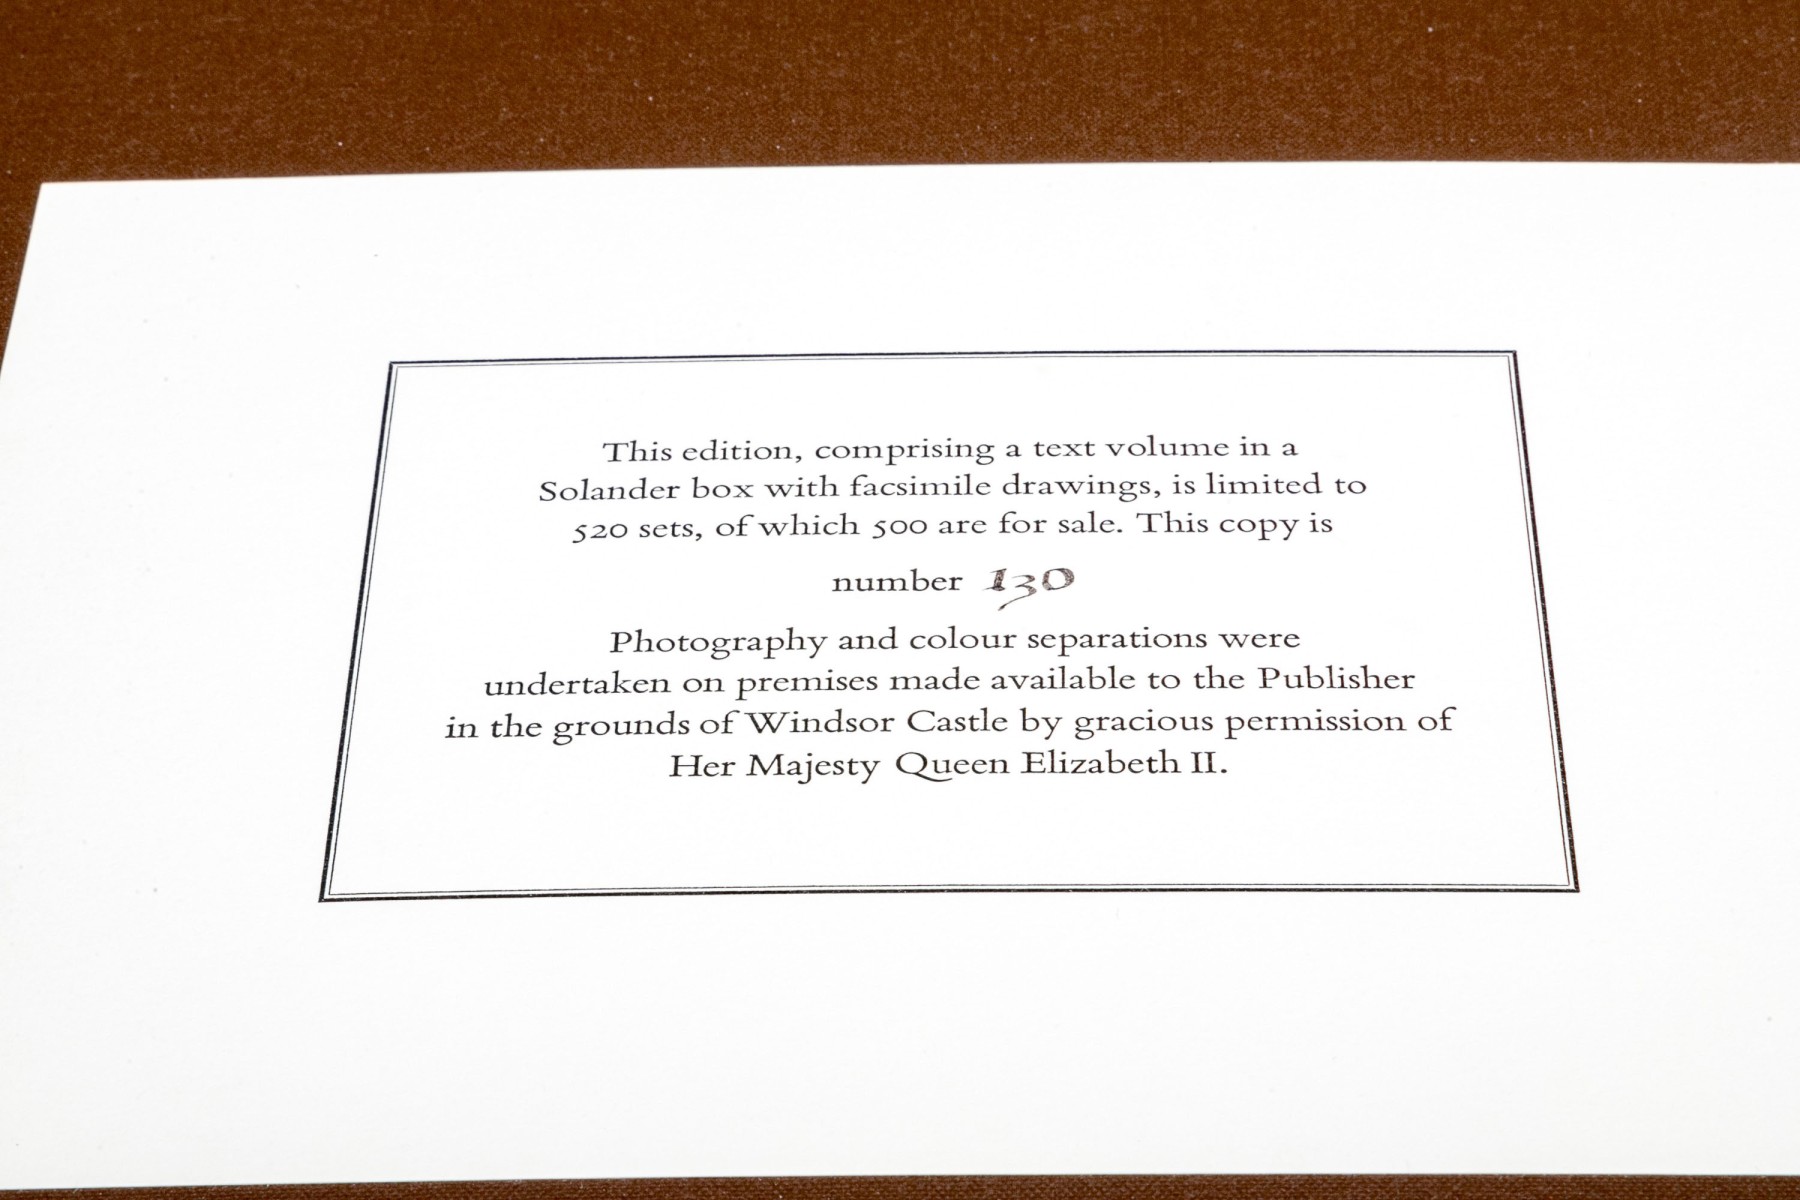 This edition, comprising a text volume in a
Solander box with facsimile drawings, is limited to
520 sets, of which 500 are for sale. This copy is
number 130
Photography and colour separations were
undertaken on premises made available to the Publisher
in the grounds of Windsor Castle by gracious permission of
Her Majesty Queen Elizabeth II.